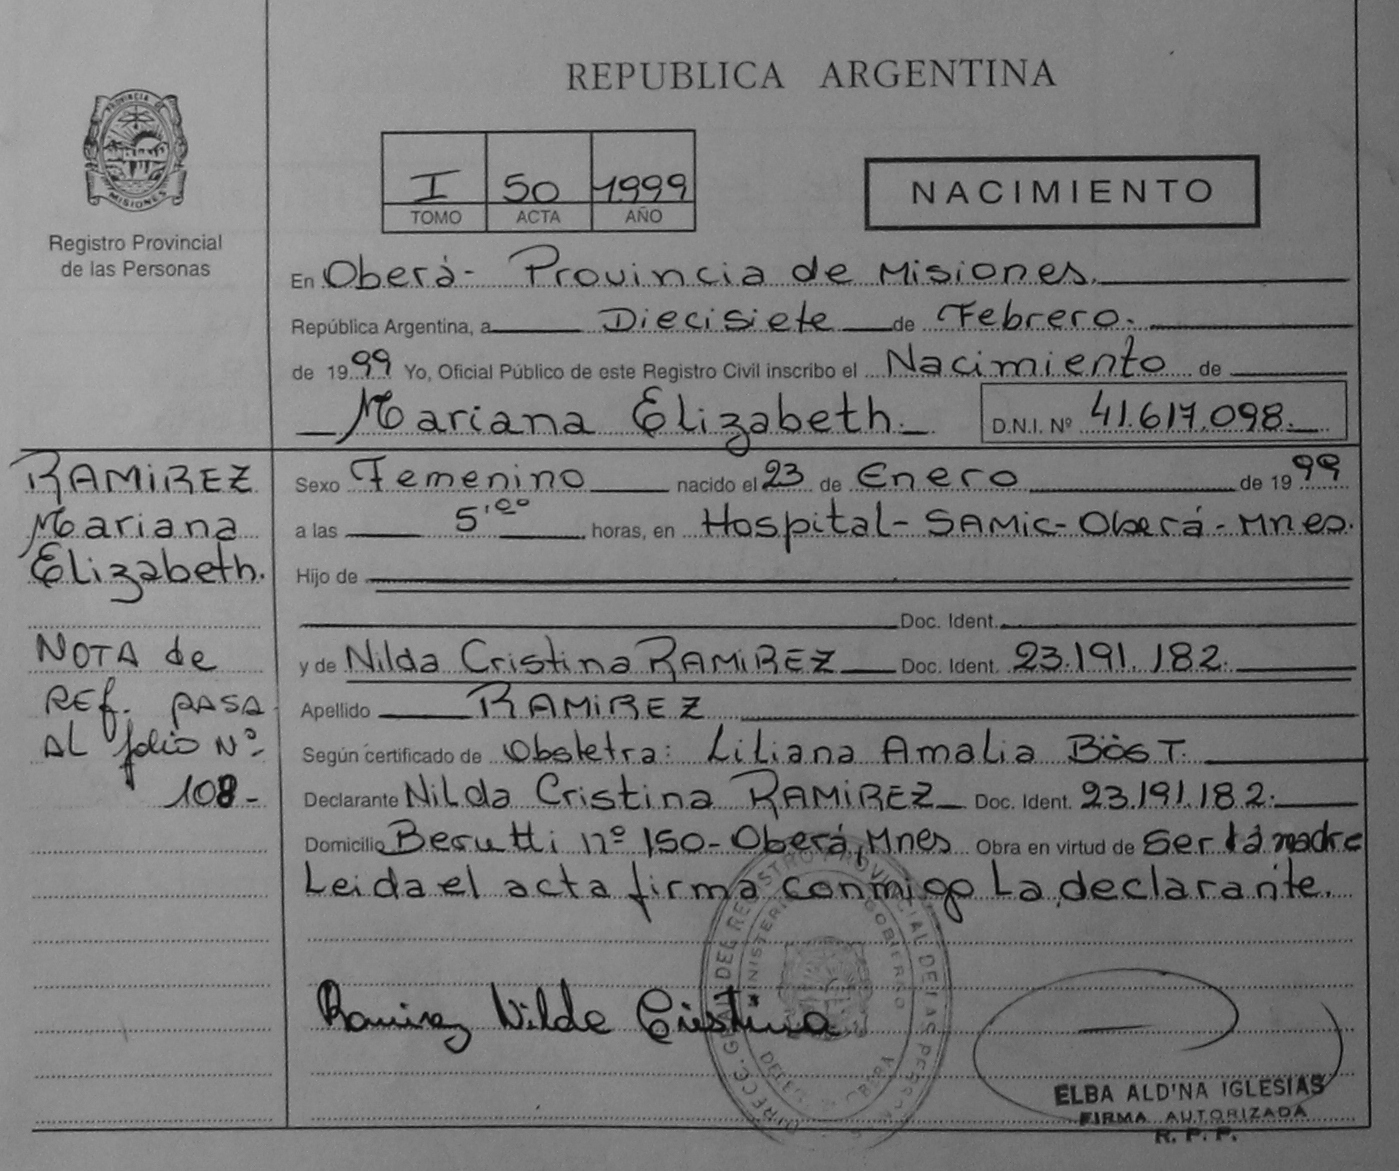 REPUBLICA ARGENTINA
PROVINCIA DE
MISIONES
Registro Provincial
de las Personas
I 50 1999
TOMO ACTA AÑO
NACIMIENTO
En Oberá- Provincia de Misiones.
República Argentina, a Diecisiete de Febrero.
de 1999 Yo, Oficial Público de este Registro Civil inscribo el Nacimiento de
Mariana Elizabeth. D.N.I. Nº 41.617.098.
RAMIREZ
Mariana
Elizabeth.
NOTA de
REf. PASA
AL folio Nº
108-
Sexo Femenino nacido el 23 de Enero de 1999
a las 5'00 horas, en Hospital-SAMic-Oberá-Mnes.
Hijo de
Doc. Ident.
y de Nilda Cristina RAMIREZ Doc. Ident. 23.191.182.
Apellido RAMIREZ
Según certificado de Obstetra: Liliana Amalia BÖST.
Declarante Nilda Cristina RAMIREZ Doc. Ident. 23.191.182.
Domicilio Berutti nº 150-Oberá, Mnes Obra en virtud de Ser la madre
Leida el acta firma conmigo La declarante.
Ramirez Nilda Cristina
DEL REGISTRO PROVINCIAL DE LAS
MINISTERIO GOBIERNO
OBERA
ELBA ALD'NA IGLESIAS
FIRMA AUTORIZADA
R. P. P.